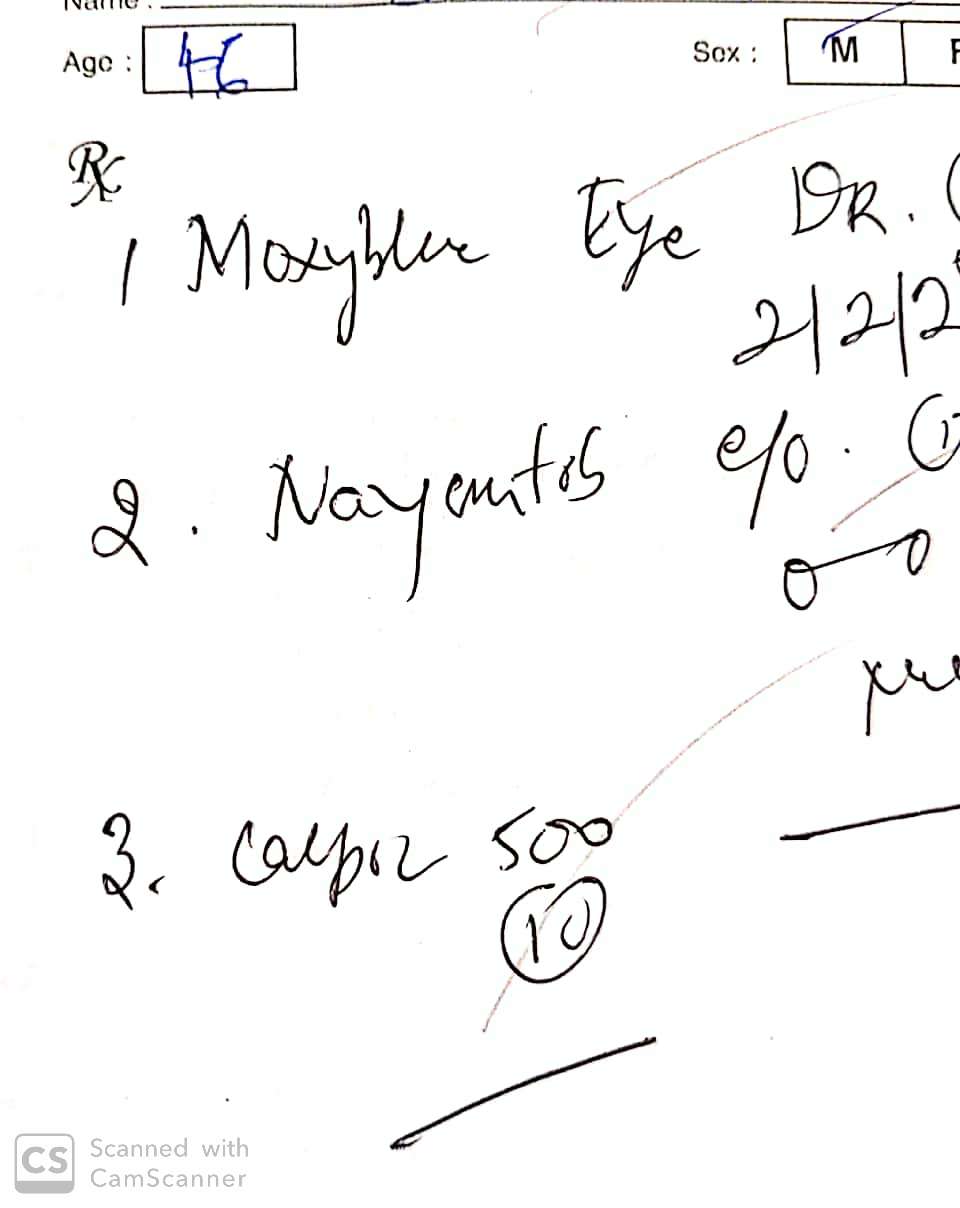 Name :
Age : 46 Sex : M F
Rx
1 Moxyblue Eye DR. (
2/2/2
2. Nayamtob e/o. (1
3. Calpol 500
10
CS Scanned with
CamScanner